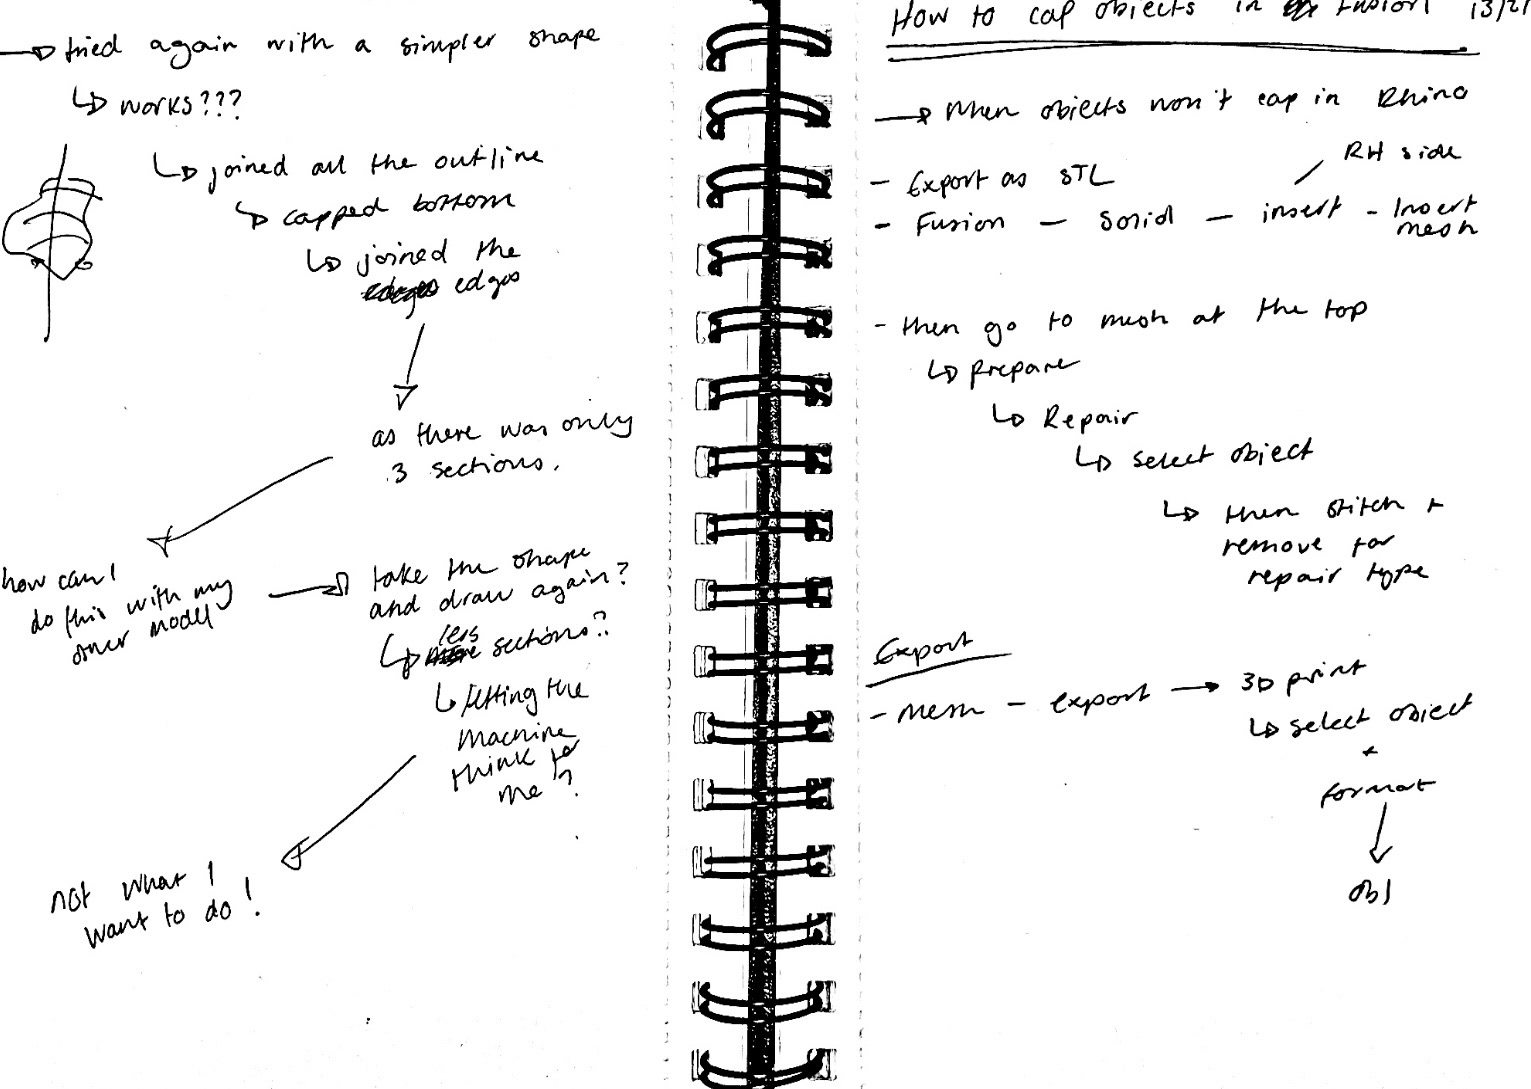 → tried again with a simpler shape
↳ works???
↳ joined all the outline
↳ capped bottom
↳ joined the
edges
as there was only
3 sections.
how can I
do this with my
other model
→ take the shape
and draw again?
↳ less sections??
↳ letting the
machine
think for
me?
not what I
want to do!
How to cap objects in Fusion 13/21
→ When objects won't cap in Rhino
RH side
- Export as STL
- Fusion - Solid - insert - Insert
mesh
- then go to mesh at the top
↳ prepare
↳ Repair
↳ select object
↳ then stitch +
remove for
repair type
Export
- mesh - export → 3D print
↳ select object
+
format
↓
obj